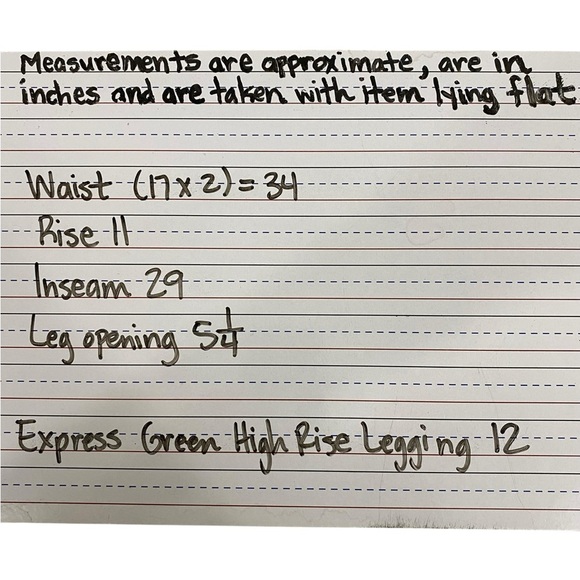 Measurements are approximate, are in
inches and are taken with item lying flat
Waist (17x2)=34
Rise 11
Inseam 29
Leg opening 5 1/4
Express Green High Rise Legging 12